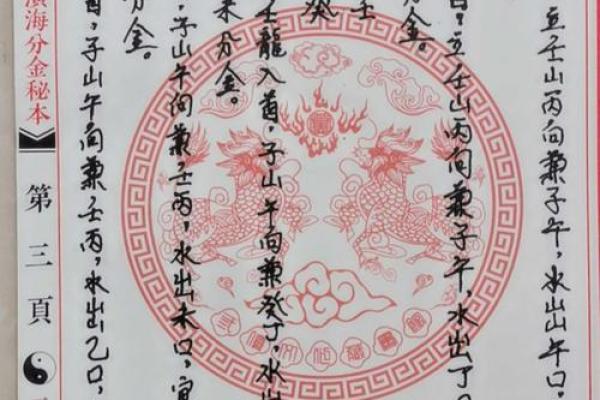 立壬山丙向兼子午，水出午口，
立壬山丙向兼子午，水出丁口
金。
壬
癸
壬龍入首，子山午向兼癸丁，水出
未分金。
子山午向兼壬丙，水出未口，宜
分金。
首，子山午向兼壬丙，水出乙口，
海分金秘本
第三頁